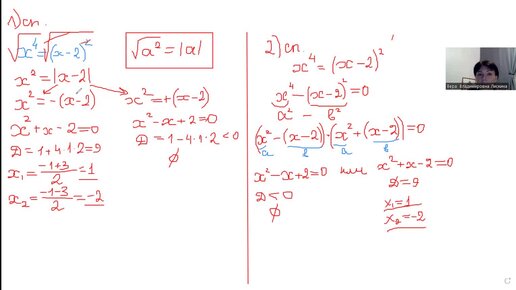 1) сп.
√x⁴ = √(x-2)²
√a² = |a|
x² = |x-2|
x² = -(x-2)
x² = +(x-2)
x² + x - 2 = 0
x² - x + 2 = 0
D = 1 + 4·1·2 = 9
D = 1 - 4·1·2 < 0
∅
x₁ = (-1+3)/2 = 1
x₂ = (-1-3)/2 = -2
2) сп.
x⁴ = (x-2)²
x⁴ - (x-2)² = 0
a² - b²
(x² - (x-2))·(x² + (x-2)) = 0
a b a b
x² - x + 2 = 0 или x² + x - 2 = 0
D < 0
D = 9
∅
x₁ = 1
x₂ = -2
Вера Владимировна Лискина